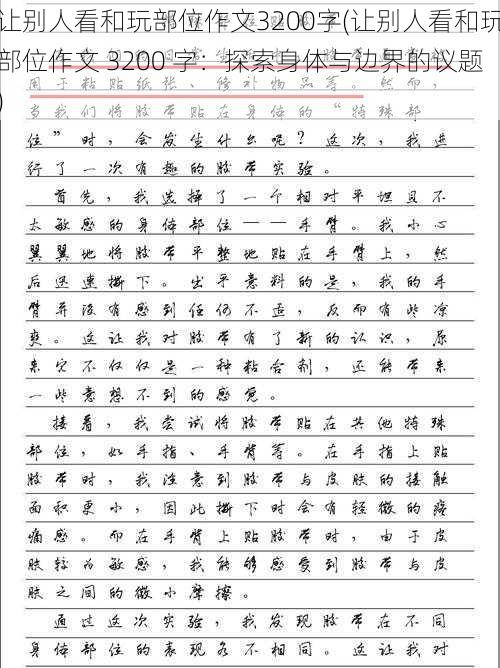 让别人看和玩部位作文3200字(让别人看和玩
部位作文 3200 字：探索身体与边界的议题
)
用于粘贴纸张、修补物品等。然而，
当我们将胶带贴在身体的“特殊部
位”时，会发生什么呢？这次，我进
行了一次有趣的胶带实验。
首先，我选择了一个相对平坦且不
太敏感的身体部位——手臂。我小心
翼翼地将胶带平整地贴在手臂上，然
后迅速撕下。出乎意料的是，我的手
臂并没有感到任何不适，反而有些凉
爽。这让我对胶带有了新的认识，原
来它不仅仅是一种粘合剂，还能带来
一些意想不到的感觉。
接着，我尝试将胶带贴在其他特殊
部位，如手指、手背等。在手指上贴
胶带时，我注意到胶带与皮肤的接触
面积更小，因此撕下时会有轻微的疼
痛感。而在手背上贴胶带时，由于皮
肤较为敏感，我能够感受到胶带与皮
肤之间的微小摩擦。
通过这次实验，我发现胶带在不同
身体部位的表现各不相同。这让我对